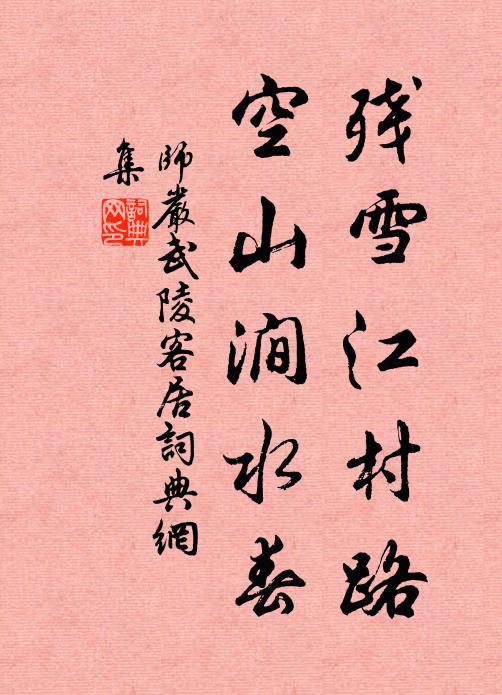 残雪江村路
空山澗水春
師嚴武陵客居詞典網
集
詞典
网印